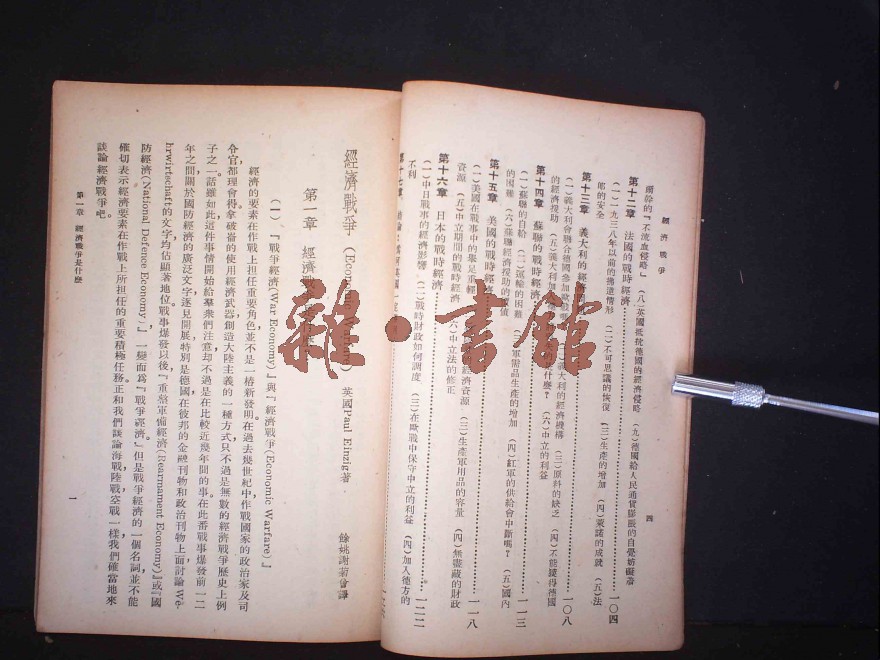 經濟戰爭
四
灑的『不流血侵略』 (八)英國抵抗德國的經濟侵略 (九)德國給人民通貨膨脹的自覺妨礙着
第十二章 法國的戰時經濟 一〇四
(一)一九三八年以前的擔遣情形 (二)不可思議的恢復 (三)生產的增加 (四)蒙諾的成就 (五)法
郎的安全
第十三章 義大利的經濟 一〇八
(一)義大利會聯合德國參加歐戰 義大利的經濟機構 (三)原料的缺乏 (四)不能獲得德國
的經濟援助 (五)義大利加 是什麼? (六)中立的利益
第十四章 蘇聯的戰時經濟 一一三
(一)蘇聯的自給 (二)運輸的困難 軍需品生產的增加 (四)紅軍的供給會中斷嗎? (五)國內
的困難 (六)蘇聯經濟援助的價值
第十五章 美國的戰時經濟 一一八
(一)美國在戰事中的舉足重輕 經濟資源 (三)生產軍用品的容量 (四)無盡藏的財政
資源 (五)中立期間的戰時經濟 (六)中立法的修正
第十六章 日本的戰時經濟 一二二
(一)中日戰事的經濟影響 (二)戰時財政如何調度 (三)在歐戰中保守中立的利益 (四)加入德方的
不利
第十七章
經濟戰爭 (Economic Warfare) 英國Paul Einzig著 餘姚謝菊曾譯
第一章 經濟戰爭是什麼
(一)『戰爭經濟(War Economy)』與『經濟戰爭(Economic Warfare)』
經濟的要素在作戰上担任重要角色並不是一樁新發明在過去幾世紀中作戰國家的政治家及司
令官都理會得拿破崙的使用經濟武器創造大陸主義的一種方式只不過是無數的經濟戰爭歷史上例
子之一話雖如此這件事情開始給羣衆們注意却不過是在比較近幾年間的事在此番戰事爆發前一二
年之間關於國防經濟的廣泛文字逐見開展特別是德國在彼邦的金融刊物和政治刊物上面討論We-
hrwirtschaft的文字均佔顯著地位戰事爆發以後『重整軍備經濟(Rearmament Economy)』或『國
防經濟(National Defence Economy)』一變而爲『戰爭經濟』但是戰爭經濟的一個名詞並不能
確切表示經濟要素在作戰上所担任的重要積極任務正和我們談論海戰陸戰空戰一樣我們確當地來
談論經濟戰爭吧
第一章 經濟戰爭是什麼
一
雜·書館